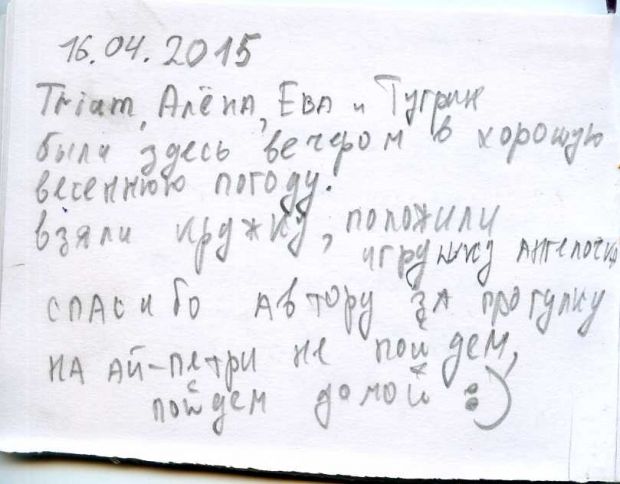 16.04.2015
Trium, Алёна, Ева и Тугрик
были здесь вечером в хорошую
весеннюю погоду.
взяли кружку, положили
игрушку ангелочка
спасибо автору за прогулку
на Ай-петри не пойдем,
пойдем домой :)